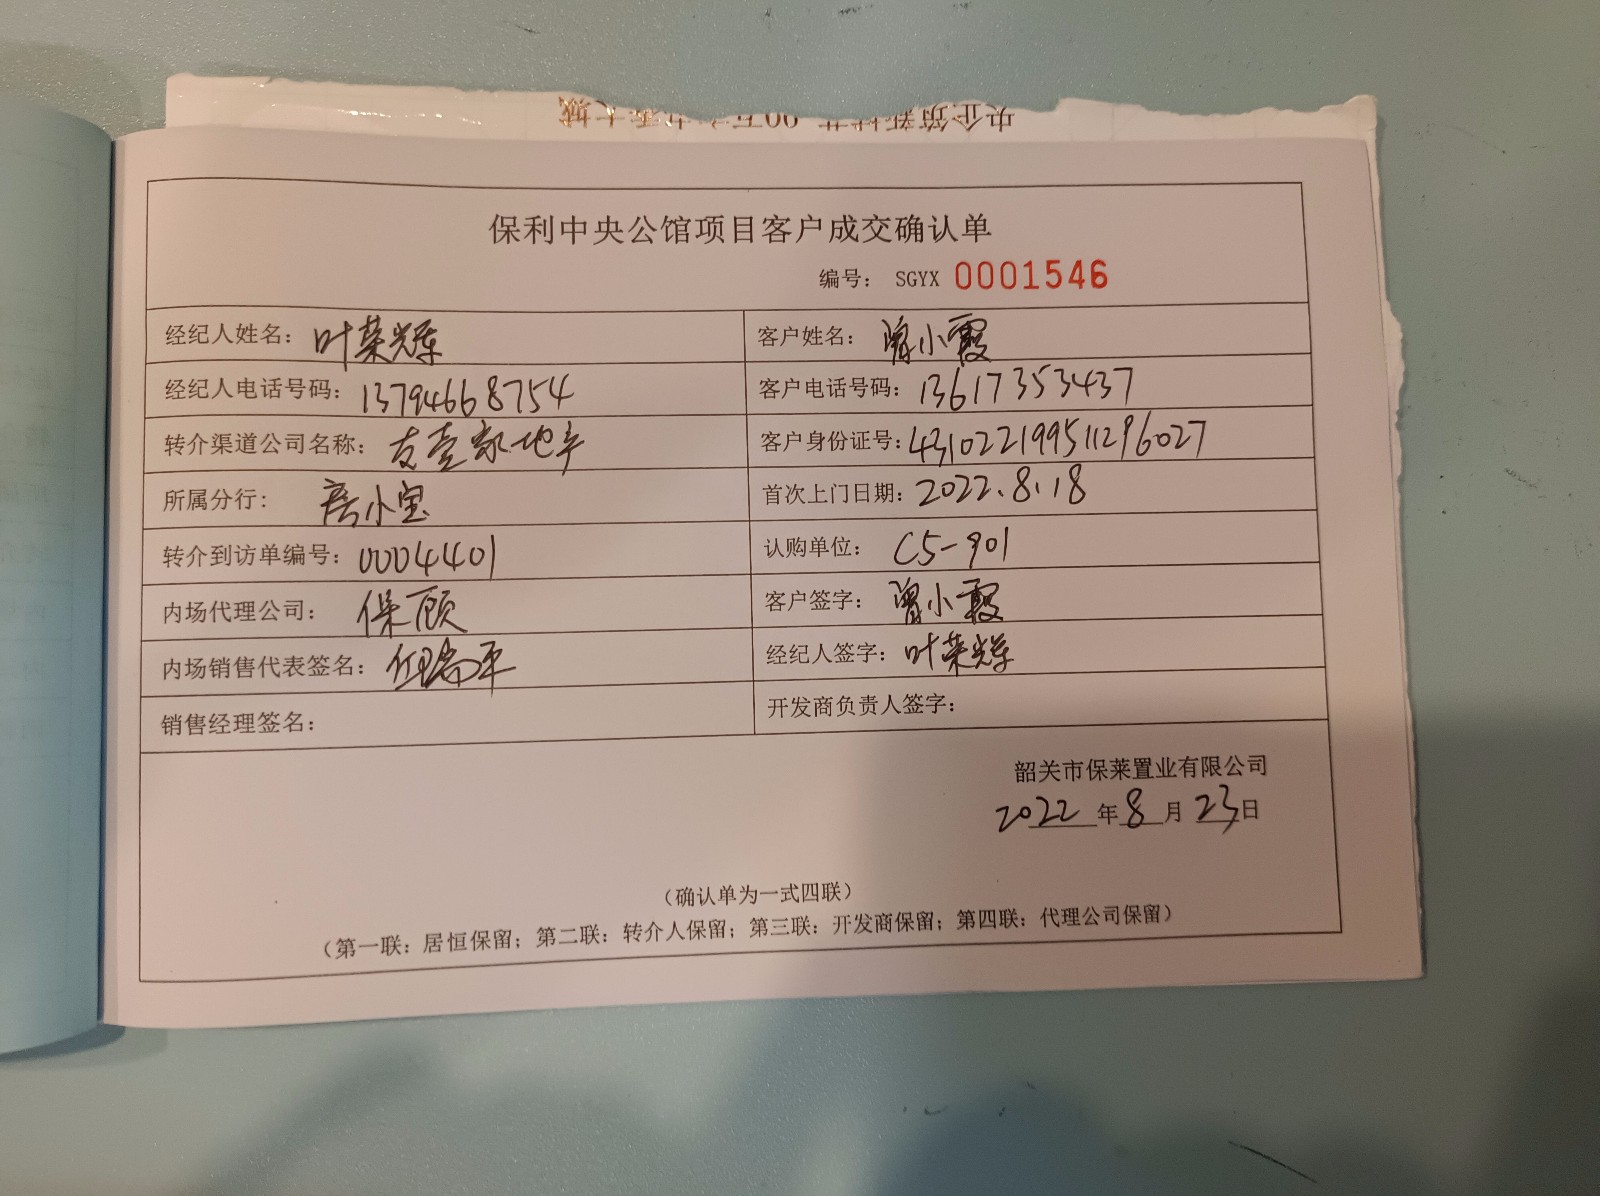 保利中央公馆项目客户成交确认单
编号： SGYX 0001546
经纪人姓名：叶荣辉
客户姓名：曾小霞
经纪人电话号码：13794668754
客户电话号码：13617353437
转介渠道公司名称：友壹家地产
客户身份证号：431022199511296027
所属分行：房小宝
首次上门日期：2022.8.18
转介到访单编号：0004401
认购单位：C5-901
内场代理公司：保顾
客户签字：曾小霞
内场销售代表签名：伍瑞平
经纪人签字：叶荣辉
销售经理签名：
开发商负责人签字：
韶关市保莱置业有限公司
2022年8月23日
（确认单为一式四联）
（第一联：居恒保留；第二联：转介人保留；第三联：开发商保留；第四联：代理公司保留）